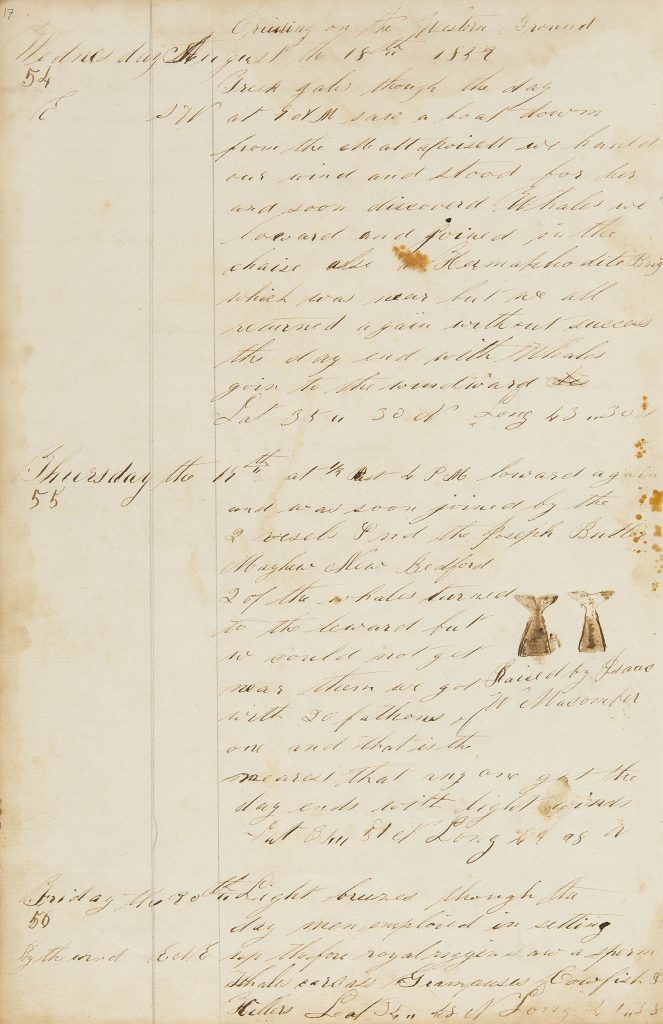 17
Cruising on the Western Ground
Wednesday August the 18th 1859
54
Brisk gales though the day
E
at 7 AM saw a boat down
from the Mattapoisett we hauld
our wind and stood for her
and soon discoverd Whales we
loward and joined in the
chaise also a Hermaphodite Brig
which was near but we all
returned again without success
the day end with Whales
goin to the windward
Lat 35 " 30 N Long 43 " 30
Thursday the 19th at ½ Past 4 PM loward again
55
and was soon joined by the
2 vesels and the Joseph Butler
Mayhew New Bedford
2 of the whales turned
to the leward but
w could not get
near them we got
Raised by Isaac
W Macomber
with 20 fathoms of
one and that is the
nearest that any one got the
day ends with light winds
Lat N Long W
Friday the 20th Light breezes though the
56
day men emploid in setting
By the wind E N E
up the fore royal riggin saw a sperm
Whale carcass Grampuses Cowfish &
Killers Lat 34 " 43 N Long